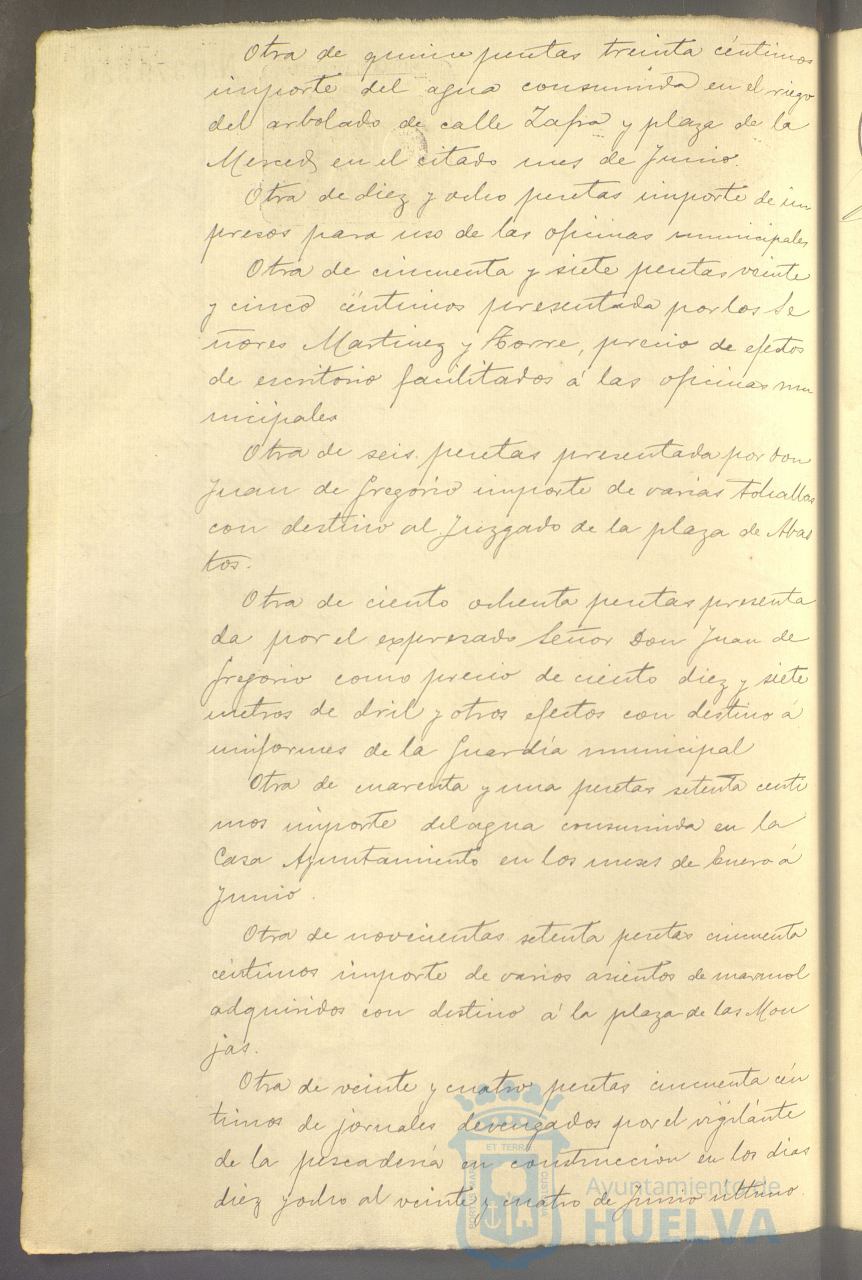 Otra de quince pesetas treinta céntimos
importe del agua consumida en el riego
del arbolado de calle Zafra y plaza de la
Merced en el citado mes de Junio.
Otra de diez y ocho pesetas importe de im
presos para uso de las oficinas municipales
Otra de cincuenta y siete pesetas veinte
y cinco céntimos presentada por los Se
ñores Martinez y Torre, precio de efectos
de escritorio facilitados á las oficinas mu
nicipales
Otra de seis pesetas presentada por Don
Juan de Gregorio importe de varias tohallas
con destino al Juzgado de la plaza de Abas
tos.
Otra de ciento ochenta pesetas presenta
da por el expresado Señor Don Juan de
Gregorio como precio de ciento diez y siete
metros de dril y otros efectos con destino á
uniformes de la Guardia municipal
Otra de cuarenta y una pesetas setenta centi
mos importe del agua consumida en la
Casa Ayuntamiento en los meses de Enero á
Junio.
Otra de novecientas setenta pesetas cincuenta
céntimos importe de varios asientos de marmol
adquiridos con destino á la plaza de las Mon
jas.
Otra de veinte y cuatro pesetas cincuenta cén
timos de jornales devengados por el vigilante
de la pescadería en construccion en los dias
diez y ocho al veinte y cuatro de Junio ultimo.
ET TERRÆ
CUSTODIA
PORTUS MARIS
Ayuntamiento de
HUELVA